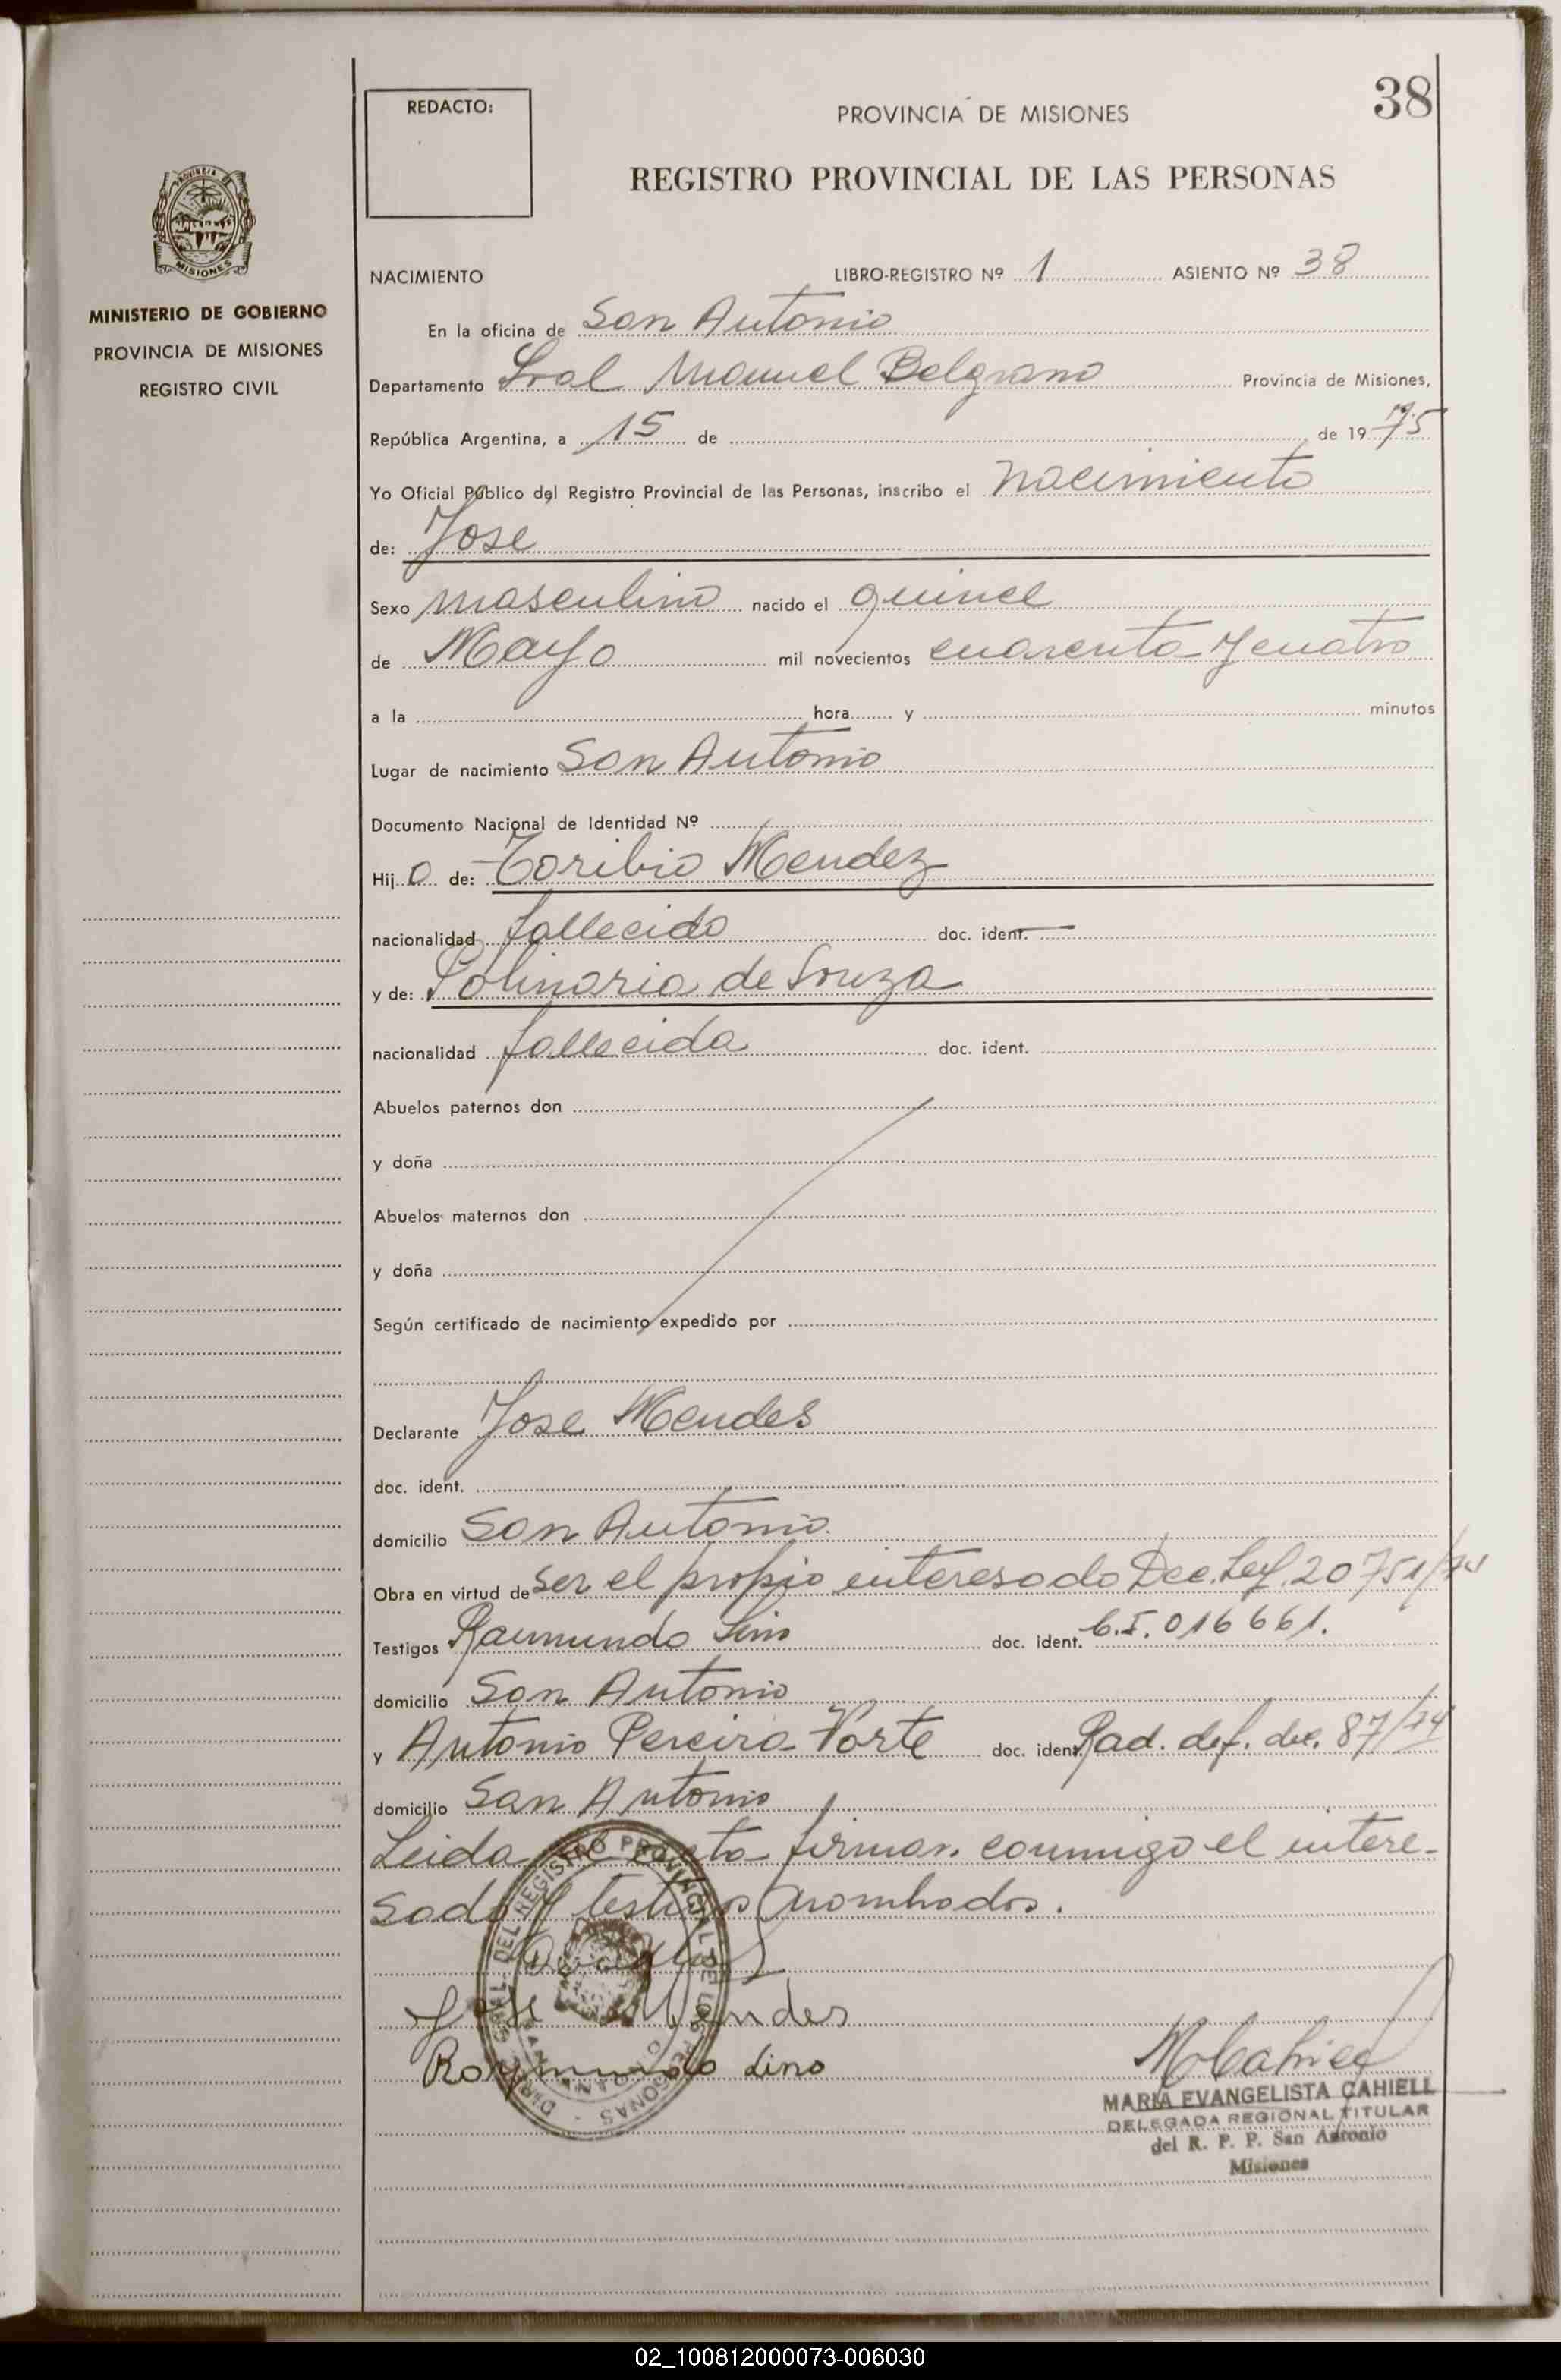 38
REDACTO:
PROVINCIA DE MISIONES
REGISTRO PROVINCIAL DE LAS PERSONAS
PROVINCIA DE
MISIONES
MINISTERIO DE GOBIERNO
PROVINCIA DE MISIONES
REGISTRO CIVIL
NACIMIENTO LIBRO-REGISTRO Nº 1 ASIENTO Nº 38
En la oficina de San Antonio
Departamento Gral Manuel Belgrano Provincia de Misiones,
República Argentina, a 15 de de 1975
Yo Oficial Público del Registro Provincial de las Personas, inscribo el nacimiento
de: Jose
Sexo masculino nacido el quince
de Mayo mil novecientos cuarenta y cuatro
a la hora y minutos
Lugar de nacimiento San Antonio
Documento Nacional de Identidad Nº
Hijo de: Toribio Mendez
nacionalidad fallecido doc. ident.
y de: Polinaria de Souza
nacionalidad fallecida doc. ident.
Abuelos paternos don
y doña
Abuelos maternos don
y doña
Según certificado de nacimiento expedido por
Declarante Jose Mendes
doc. ident.
domicilio San Antonio
Obra en virtud de ser el propio interesado Dec. Ley. 20751/74
Testigos Raimundo Lino doc. ident. C.I. 016661.
domicilio San Antonio
y Antonio Pereira Vorte doc. ident. Rad. def. dec. 87/74
domicilio San Antonio
Leida acta firman conmigo el intere-
sado y testigos nombrados.
Jose Mendes
Raymundo Lino
MARIA EVANGELISTA CAHIELL
DELEGADA REGIONAL TITULAR
del R. P. P. San Antonio
Misiones
DEL REGISTRO PROVINCIAL DE LAS PERSONAS
02_100812000073-006030